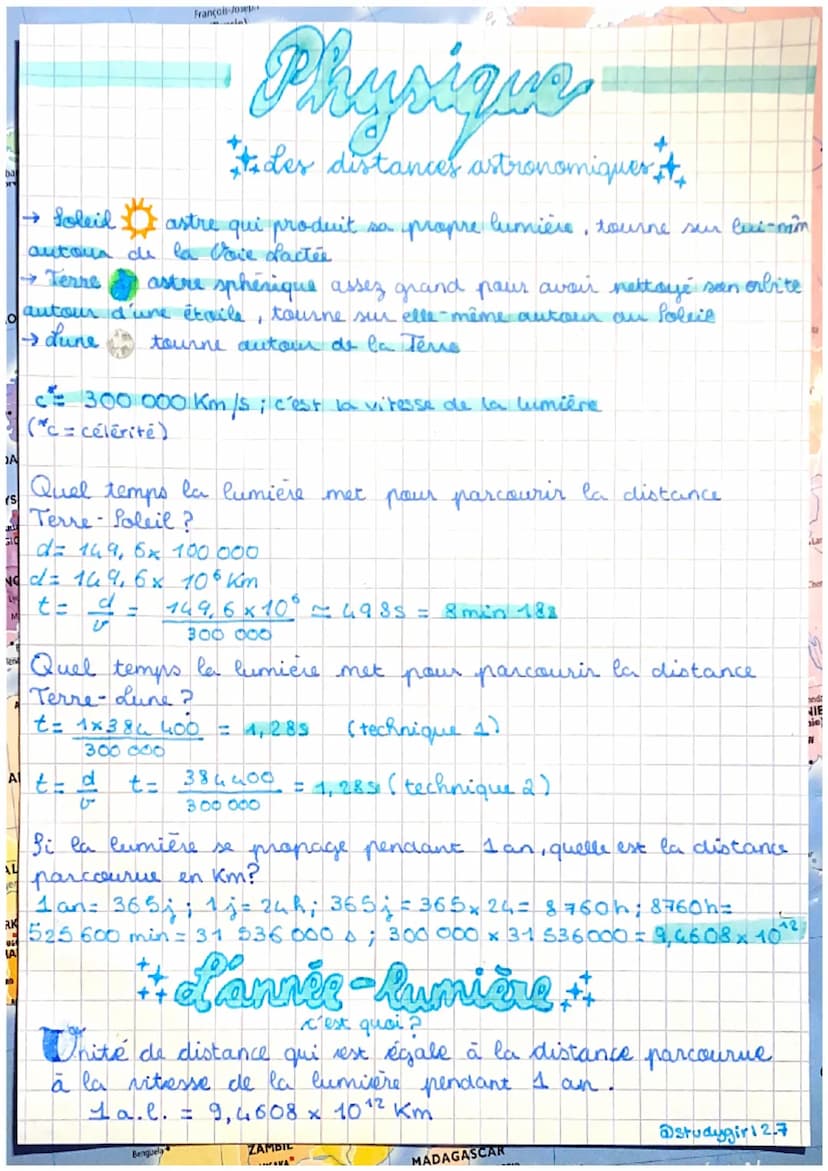 François-Joseph
Physique
Les distances astronomiques
→ Soleil astre qui produit sa propre lumière, tourne sur lui-mêm
autour de la Voie Lactée
→ Terre astre sphérique assez grand pour avoir nettoyé son orbite
autour d'une étoile, tourne sur elle-même autour au Soleil
→ Lune tourne autour de la Terre
c*= 300 000 Km/s ; c'est la vitesse de la lumière
(*c = célérité)
Quel temps la lumière met pour parcourir la distance
Terre-Soleil ?
d= 149,6x 100 000
d= 149,6x 10⁶ Km
t= d/v = 149,6 x 10⁶/300 000 ≃ 498s = 8min 18s
Quel temps la lumière met pour parcourir la distance
Terre-Lune ?
t= 1x384 400/300 000 = 1,28s (technique 1)
t= d/v t= 384400/300 000 = 1,28s (technique 2)
Si la lumière se propage pendant 1 an, quelle est la distance
parcourue en Km?
1an= 365j ; 1j= 24h; 365j = 365x24= 8760h ; 8760h=
525 600 min = 31 536 000 s ; 300 000 x 31 536000 = 9,4608 x 10¹²
L'année-lumière
c'est quoi ?
Unité de distance qui est égale à la distance parcourue
à la vitesse de la lumière pendant 1 an.
1 a.l. = 9,4608 x 10¹² Km
@studygirl2.7
Benguela
ZAMBIE
MADAGASCAR